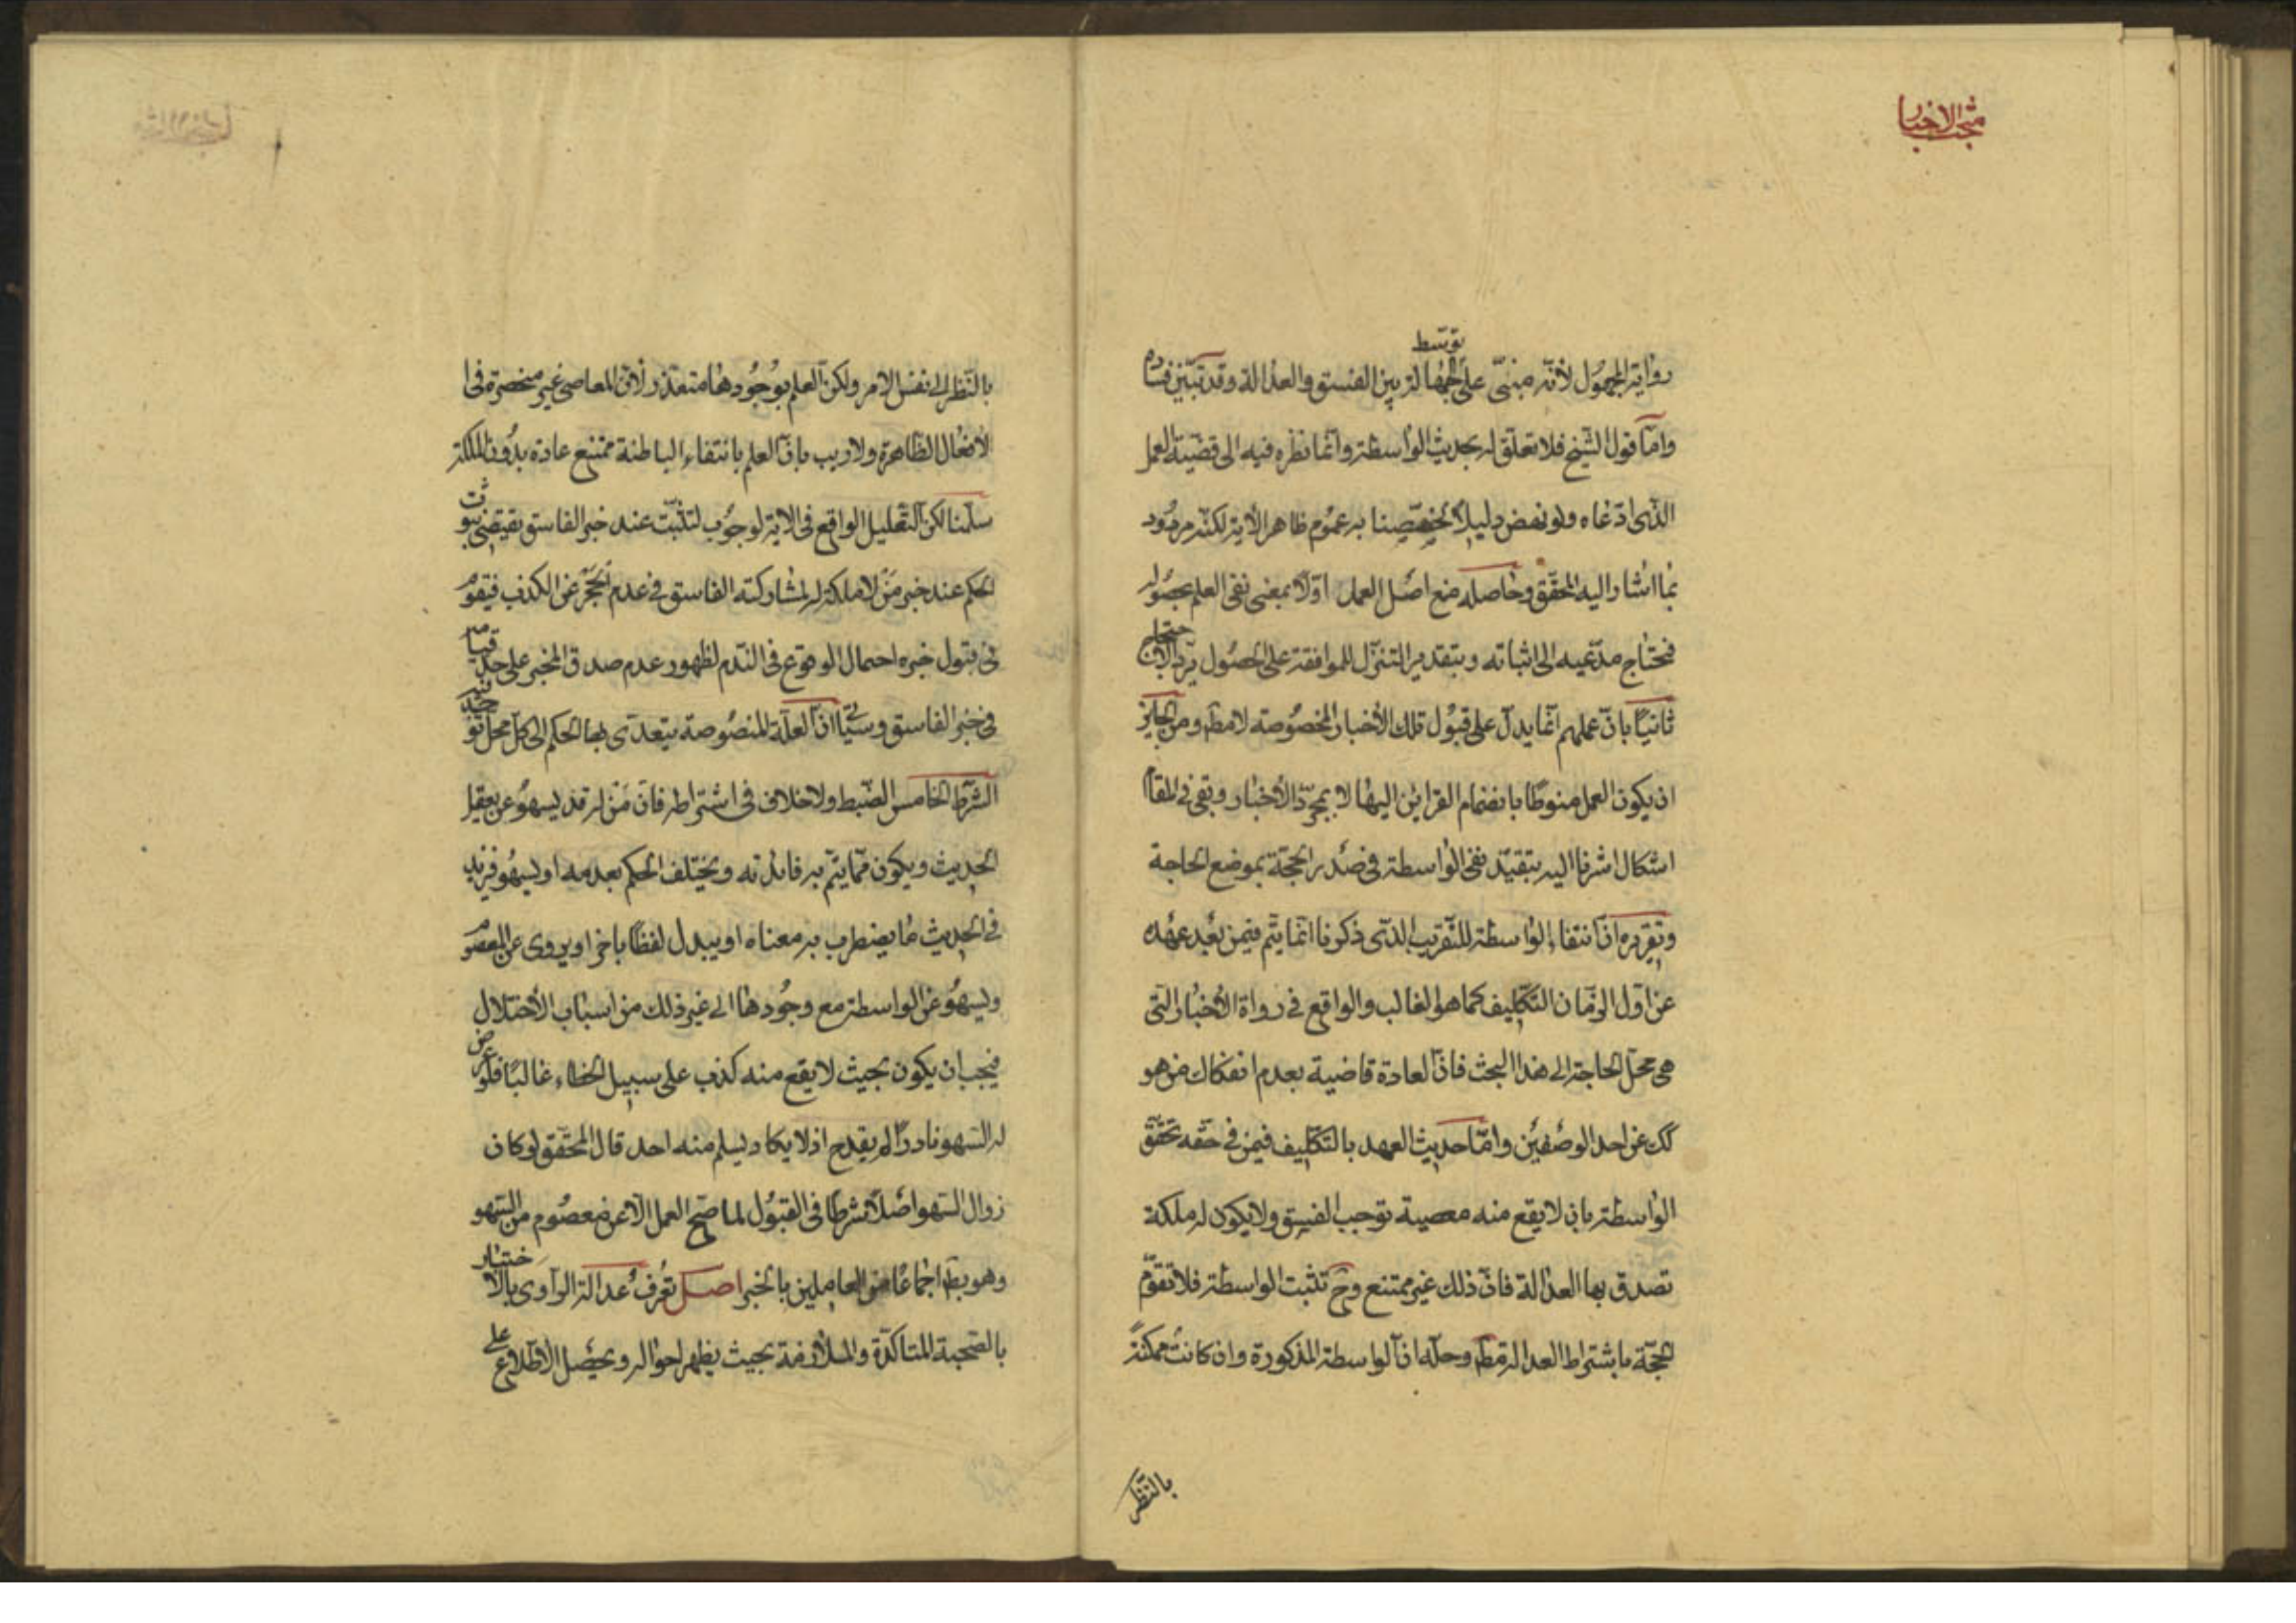 مبحث الاخبار
رواية المجهول لأنّه مبنىّ على توسّط الجهالة بين الفسق والعدالة وقد تبيّن فساده
وامّا قول الشّيخ فلا تعلّق له بحديث الواسطة وانّما نظره فيه الى قضيّة العمل
الذّى ادّعاه ولو نهض دليلاً لخصّصنا به عموم ظاهر الأية لكنّه مردود
بما اشار اليه المحقّق وحاصله منع اصل العمل اوّلاً بمعنى نفى العلم بحصوله
فيحتاج مدّعيه الى اثباته وبتقدير التنزّل للموافقة على الحصول يردّ الاحتجاج
ثانياً بانّ عملهم انّما يدلّ على قبول تلك الأخبار المخصوصة لا مط ومن الجايز
ان يكون العمل منوطاً بانضمام القراين اليها لا بمجرّد الأخبار وبقى فى المقام
اشكال اشرنا اليه بتقيّد نفى الواسطة فى صدر الحجّة بموضع الحاجة
وتقريره انّ انتفاء الواسطة للتّقريب الذّى ذكرنا انّما يتّم فيمن بعد عهده
عن اوّل الزّمان التّكليف كما هو الغالب والواقع فى رواة الأخبار التّى
هى محلّ الحاجة الى هذا البحث فانّ العادة قاضية بعدم انفكاك من هو
كك عن احد الوصفين وامّا حديث العهد بالتّكليف فيمن فى حقّه تحقّق
الواسطة بان لا يقع منه معصية توجب الفسق ولا يكون له ملكة
تصدق بها العدالة فانّ ذلك غير ممتنع وح تثبت الواسطة فلا تقوّم
الحجّة باشتراط العدالة مط وحلّه انّ الواسطة المذكورة وان كانت ممكنة
بالنّظر
بالنّظر الى نفس الامر ولكنّ العلم بوجودها متعذّر لأنّ المعاصى غير منحصرة فى ا
لأفعال الظّاهرة ولا ريب بانّ العلم بانتفاء الباطنة ممتنع عادة بدون الملكة
سلّمنا لكن التّعليل الواقع فى الاية لوجوب لتثبّت عند خبر الفاسق يقتضى ثبوت
الحكم عند خبر من لا ملكة له لمشاركته الفاسق فى عدم الحجر عن الكذب فيقوم
فى قبول خبره احتمال الوقوع فى النّدم لظهور عدم صدق المخبر على حدّ قيامه
فى خبر الفاسق وسيأتى انّ العلّة المنصوصة يتعدّى بها الحكم الى كلّ محلّ توجد فيه
الشّرط الخامس الضّبط ولا خلاف فى اشتراطه فانّ من له قد يسهو عن بعض
الحديث ويكون ممّا يتّم به فائدته ويختلف الحكم بعدمه او يسهو فيزيد
فى الحديث ما يضطرب به معناه او يبدل لفظاً باخر او يروى عن المعصوم
ويسهو عن الواسطة مع وجودها الى غير ذلك من اسباب الأختلال
فيجب ان يكون بحيث لا يقع منه كذب على سبيل الخطاء غالباً فلو عرض
له السّهو نادراً لم يقدح اذ لا يكاد يسلم منه احد قال المحقّق لو كان
زوال السّهو اصلاً شرطاً فى القبول لما صحّ العمل الّا عن معصوم من السّهو
وهو بط اجماعاً من العاملين بالخبر اصل تعرف عدالة الرّاوى بالاختبار
بالصّحبة المتاكّدة والملازمة بحيث يظهر احواله ويحصل الأطّلاع على